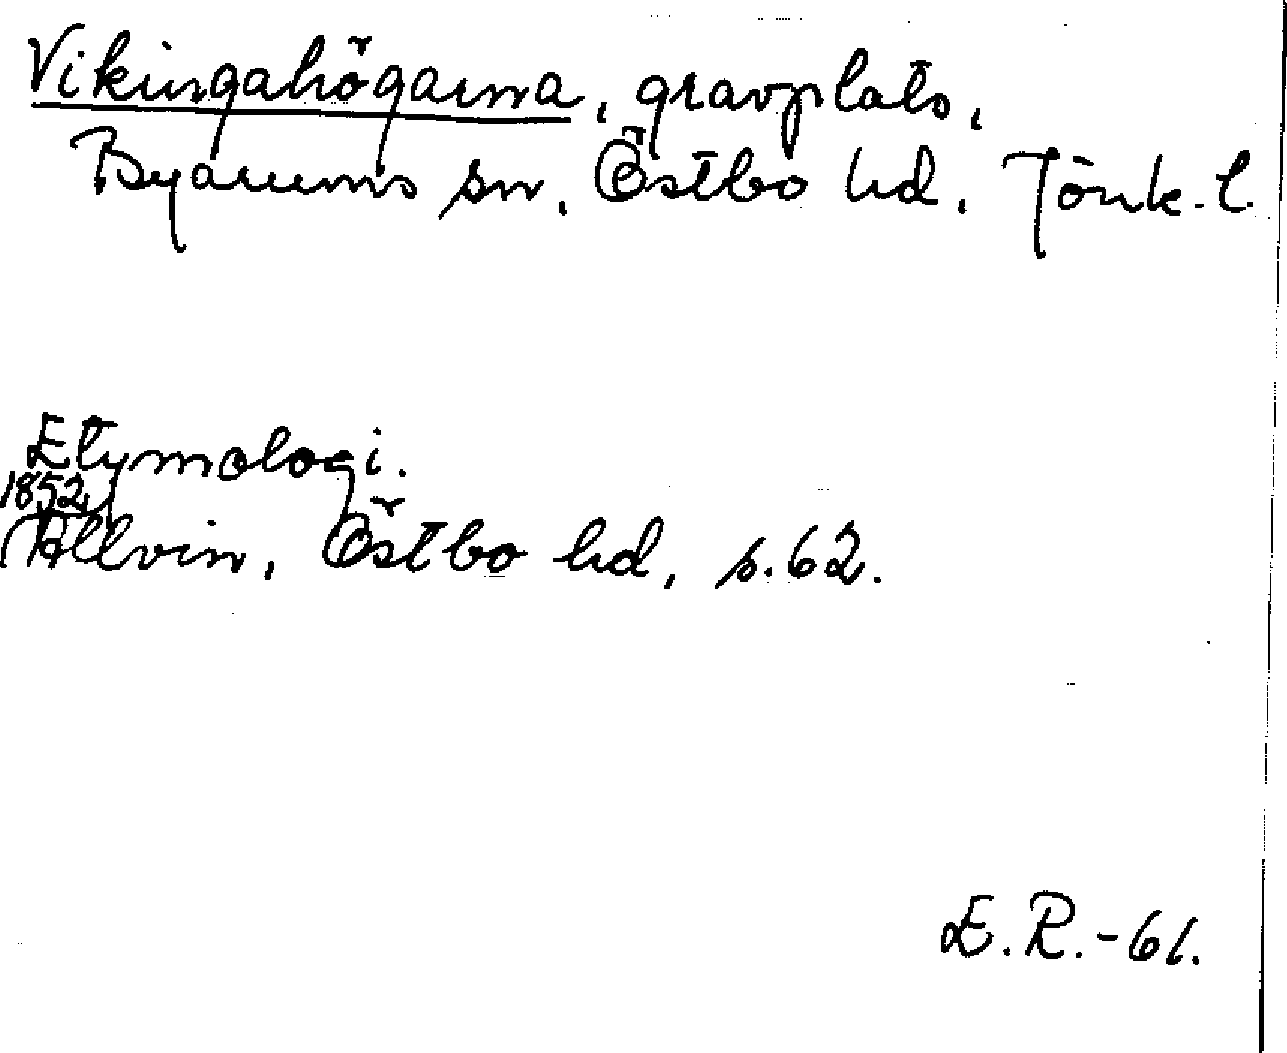 Vikingahögarna, gravplats,
Byarums sn. Östbo hd. Jönk. l.
Etymologi.
1852
Allvin, Östbo hd, s. 62.
E. R. -61.